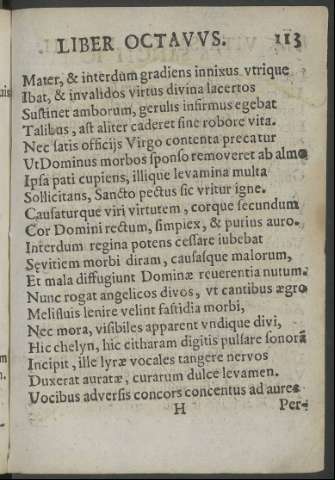 LIBER OCTAVVS. 113
Mater, & interdum gradiens innixus vtrique
Ibat, & inualidos virtus diuina lacertos
Sustinet amborum, gerulis infirmus egebat
Talibus, ast aliter caderet sine robore vita.
Nec satis officijs Virgo contenta precatur
Vt Dominus morbos sponso remoueret ab almo,
Ipsa pati cupiens, illique leuamina multa
Sollicitans, Sancto pectus sic vritur igne.
Causaturque viri virtutem, corque secundum
Cor Domini rectum, simplex, & purius auro.
Interdum regina potens cessare iubebat
Sęvitiem morbi diram, causasque malorum,
Et mala diffugiunt Dominæ reuerentia nutum.
Nunc rogat angelicos diuos, vt cantibus ægro
Melifluis lenire velint fastidia morbi,
Nec mora, visibiles apparent vndique diui,
Hic chelyn, hic citharam digitis pulsare sonorã
Incipit, ille lyræ vocales tangere neruos
Duxerat auratæ, curarum dulce leuamen.
Vocibus aduersis concors concentus ad aures
H Per-